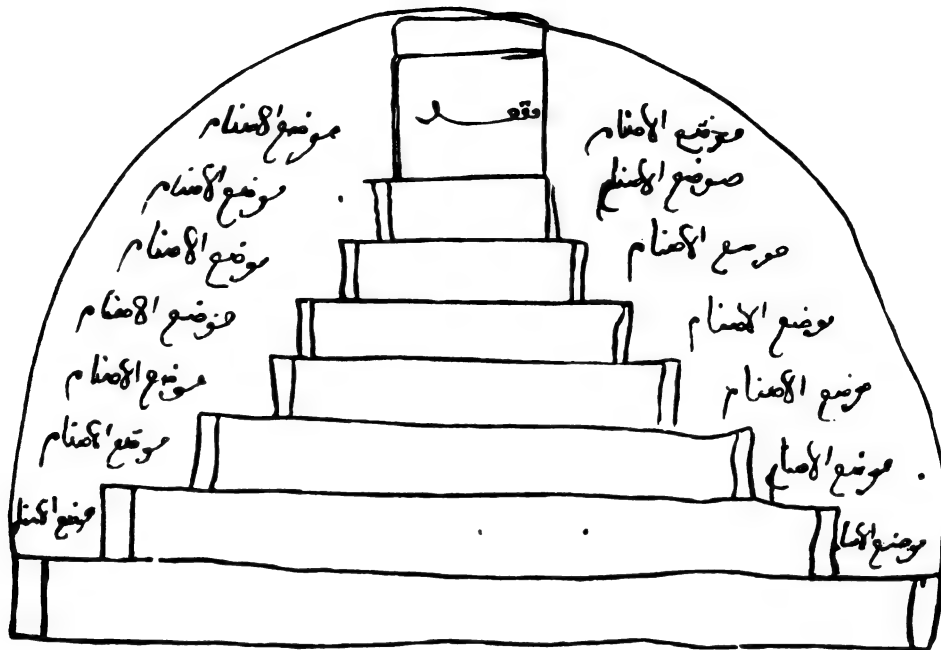 مقعد
موضع الاصنام موضع الاصنام
موضع الاصنام موضع الاصنام
موضع الاصنام موضع الاصنام
موضع الاصنام موضع الاصنام
موضع الاصنام موضع الاصنام
موضع الاصنام موضع الاصنام
موضع موضع